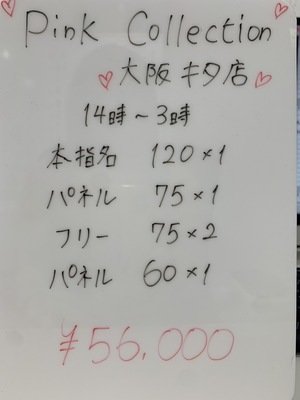 Pink Collection
大阪キタ店
14時～3時
本指名 120×1
パネル 75×1
フリー 75×2
パネル 60×1
¥56,000